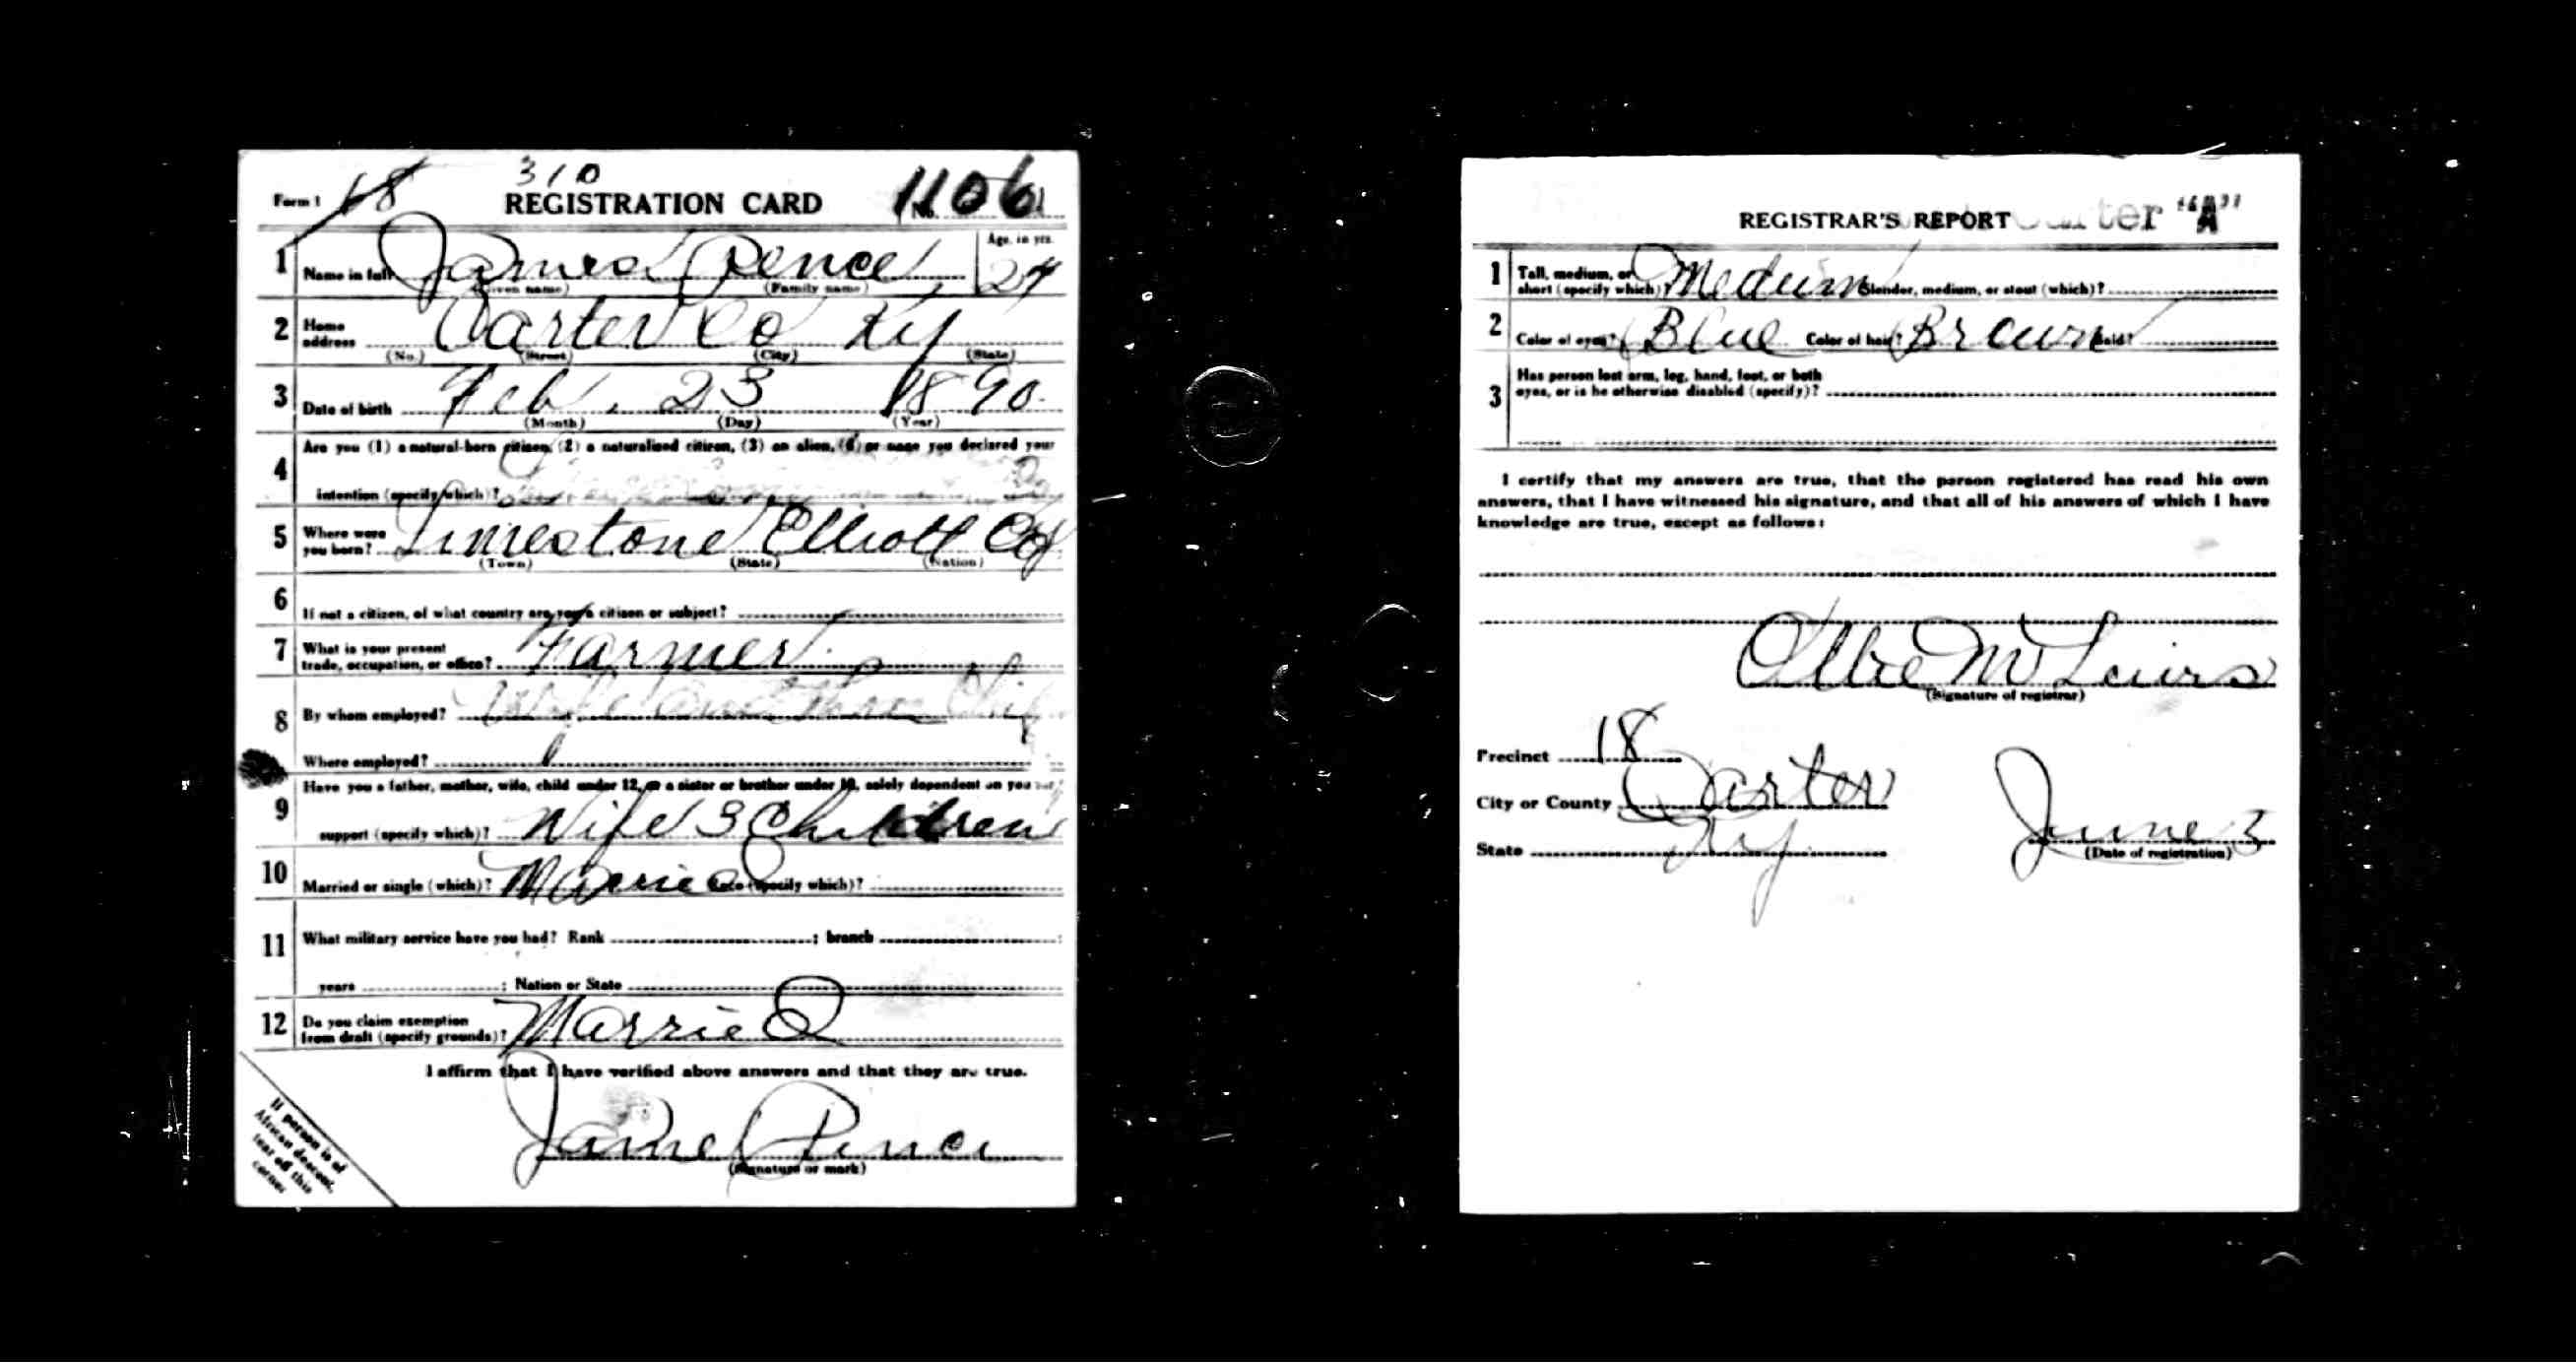 Form 1 18 310 REGISTRATION CARD No. 1106
1 Name in full James Pence Age, in yrs. 27
(Given name) (Family name)
2 Home address Carter Co Ky
(No.) (Street) (City) (State)
3 Date of birth Feb. 23 1890
(Month) (Day) (Year)
4 Are you (1) a natural-born citizen, (2) a naturalized citizen, (3) an alien, (4) or have you declared your
intention (specify which)?
5 Where were you born? Limestone Elliott Co
(Town) (State) (Nation)
6 If not a citizen, of what country are you a citizen or subject?
7 What is your present
trade, occupation, or office? Farmer
8 By whom employed? Wife and three
Where employed?
9 Have you a father, mother, wife, child under 12, or a sister or brother under 12, solely dependent on you for
support (specify which)? Wife 3 Children
10 Married or single (which)? Married Race (specify which)?
11 What military service have you had? Rank ; branch ;
years ; Nation or State
12 Do you claim exemption
from draft (specify grounds)? Married
I affirm that I have verified above answers and that they are true.
James Pence
(Signature or mark)
If person is of
African descent,
tear off this
corner.
REGISTRAR'S REPORT Carter "A"
1 Tall, medium, or
short (specify which)? Medium Slender, medium, or stout (which)?
2 Color of eyes? Blue Color of hair? Brown Bald?
3 Has person lost arm, leg, hand, foot, or both
eyes, or is he otherwise disabled (specify)?
I certify that my answers are true, that the person registered has read his own
answers, that I have witnessed his signature, and that all of his answers of which I have
knowledge are true, except as follows:
Ollie M
(Signature of registrar)
Precinct 18
City or County Carter
State Ky June 5
(Date of registration)